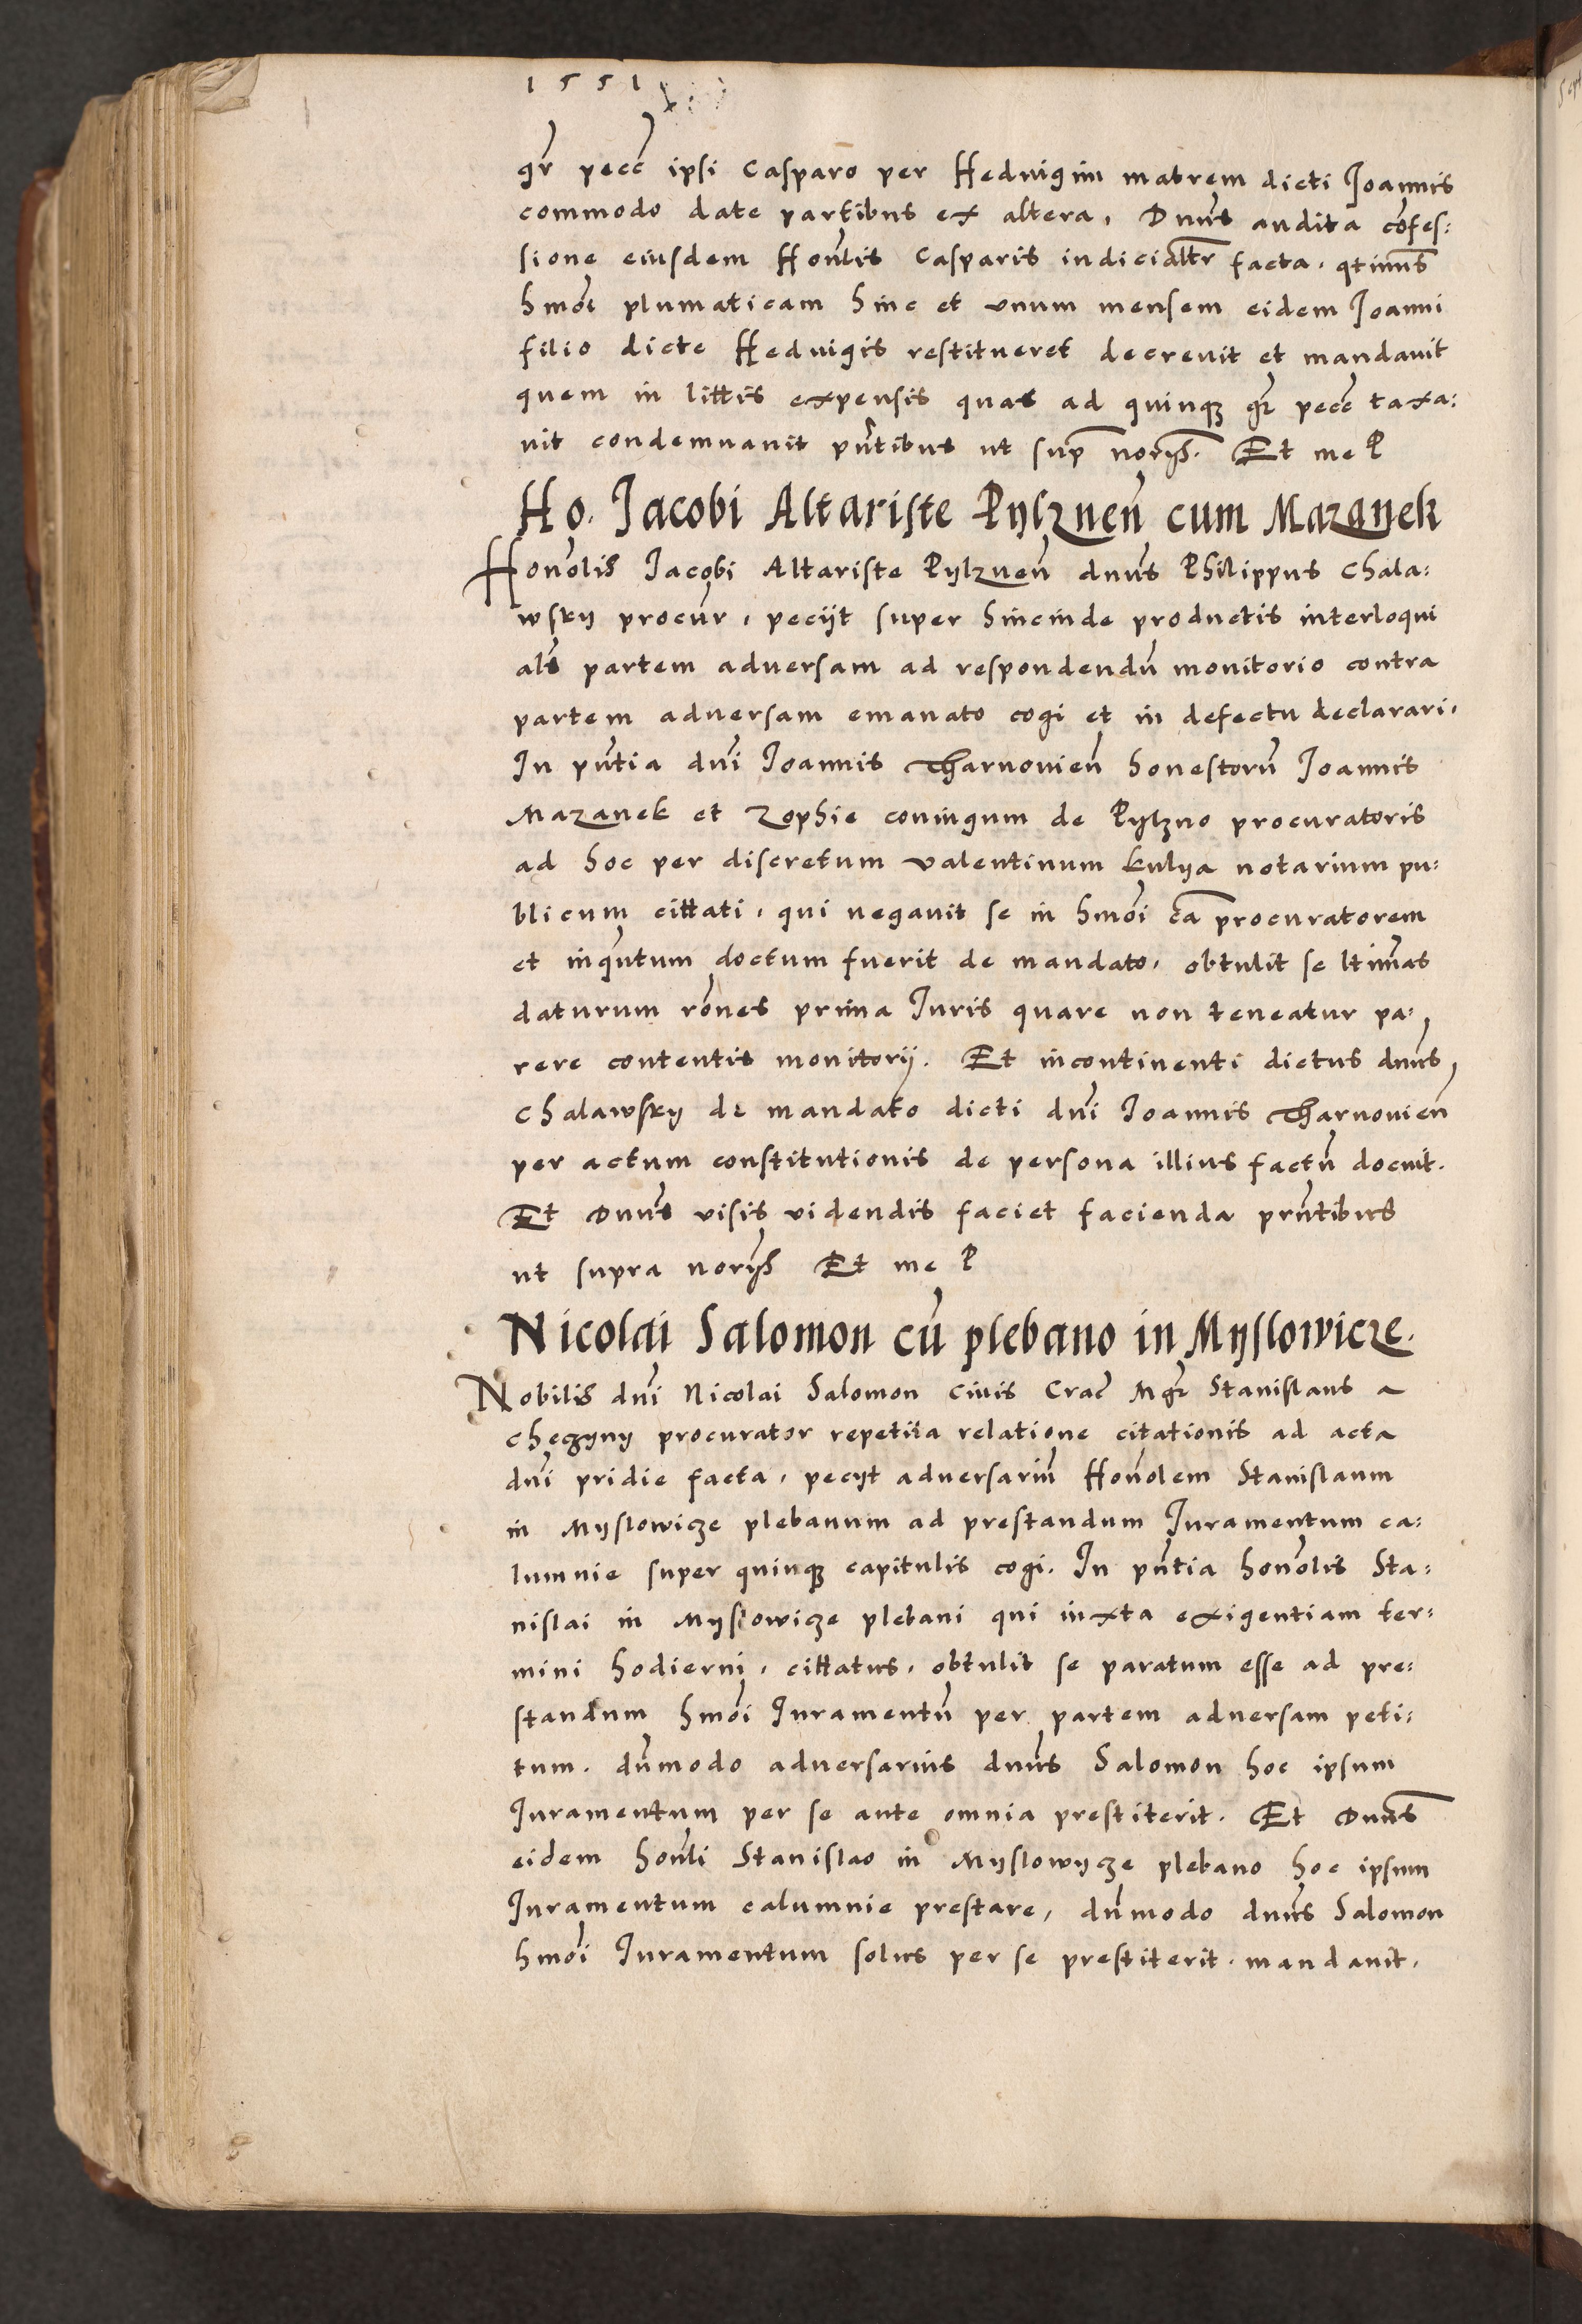 1551
gr̃ pecc̃ ipsi Casparo per Hedvigim matrem dicti Joannis
commodo date partibus ex altera, Dnũs audita cõfes:
sione eiusdem Honb̃lis Casparis iudicialtr̃ facta. qtimũs
hmõi plumaticam hinc et unum mensem eidem Joanni
filio dicte Hedvigis restitueret decrevit et mandavit
quem in littis expensis quas ad quinqȝ gr̃ pecc̃ taxa:
vit condemnavit pñtibus ut sup̃ norÿs. Et me P
Ho. Jacobi Altariste Pylznen̄ cum Mazanek
Honõlis Jacobi Altariste Pylznen̄ dnũs Philippus Chala:
wsky procur̃, pecijt super hincinde productis interloqui
als̃ partem adversam ad respondendũ monitorio contra
partem adversam emanato cogi et in defectu declarari.
In pñtia dñi Joannis Tharnovien̄ honestorũ Joannis
Mazanek et Zophie coniugum de Pylzno procuratoris
ad hoc per discretum Valentinum Kulya notarium pu:
blicum cittati. qui negavit se in hmõi cã procuratorem
et inqũtum doctum fuerit de mandato. obtulit se ltimãs
daturum rõnes prima Juris quare non teneatur pa:
rere contentis monitorij. Et incontinenti dictus dnũs
Chalawsky de mandato dicti dñi Joannis Tharnovien̄
per actum constitutionis de persona illius factũ docuit.
Et Dnũs visis videndis faciet facienda prñtibus
ut supra norÿs Et me P
Nicolai Salomon cũ plebano in Myslowicze.
Nobilis dñi Nicolai Salomon Civis Crac̃ Mgr̃ Stanislaus a
Chegyny procurator repetita relatione citationis ad acta
dñi pridie facta, pecijt adversariũ Honõlem Stanislaum
in Myslowicze plebanum ad prestandum Juramentum ca:
lumnie super quinqȝ capitulis cogi. In pñtia honõlis Sta:
nislai in Myslowicze plebani qui iuxta exigentiam ter:
mini hodierni, cittatus, obtulit se paratum esse ad pre:
standum hmõi Juramentũ per partem adversam peti:
tum. dũmodo adversarius dnũs Salomon hoc ipsum
Juramentum per se ante omnia prestiterit. Et Dnũs
eidem honb̃li Stanislao in Myslowycze plebano hoc ipsum
Juramentum calumnie prestare, dũmodo dnũs Salomon
hmõi Juramentum solus per se prestiterit. mandavit.